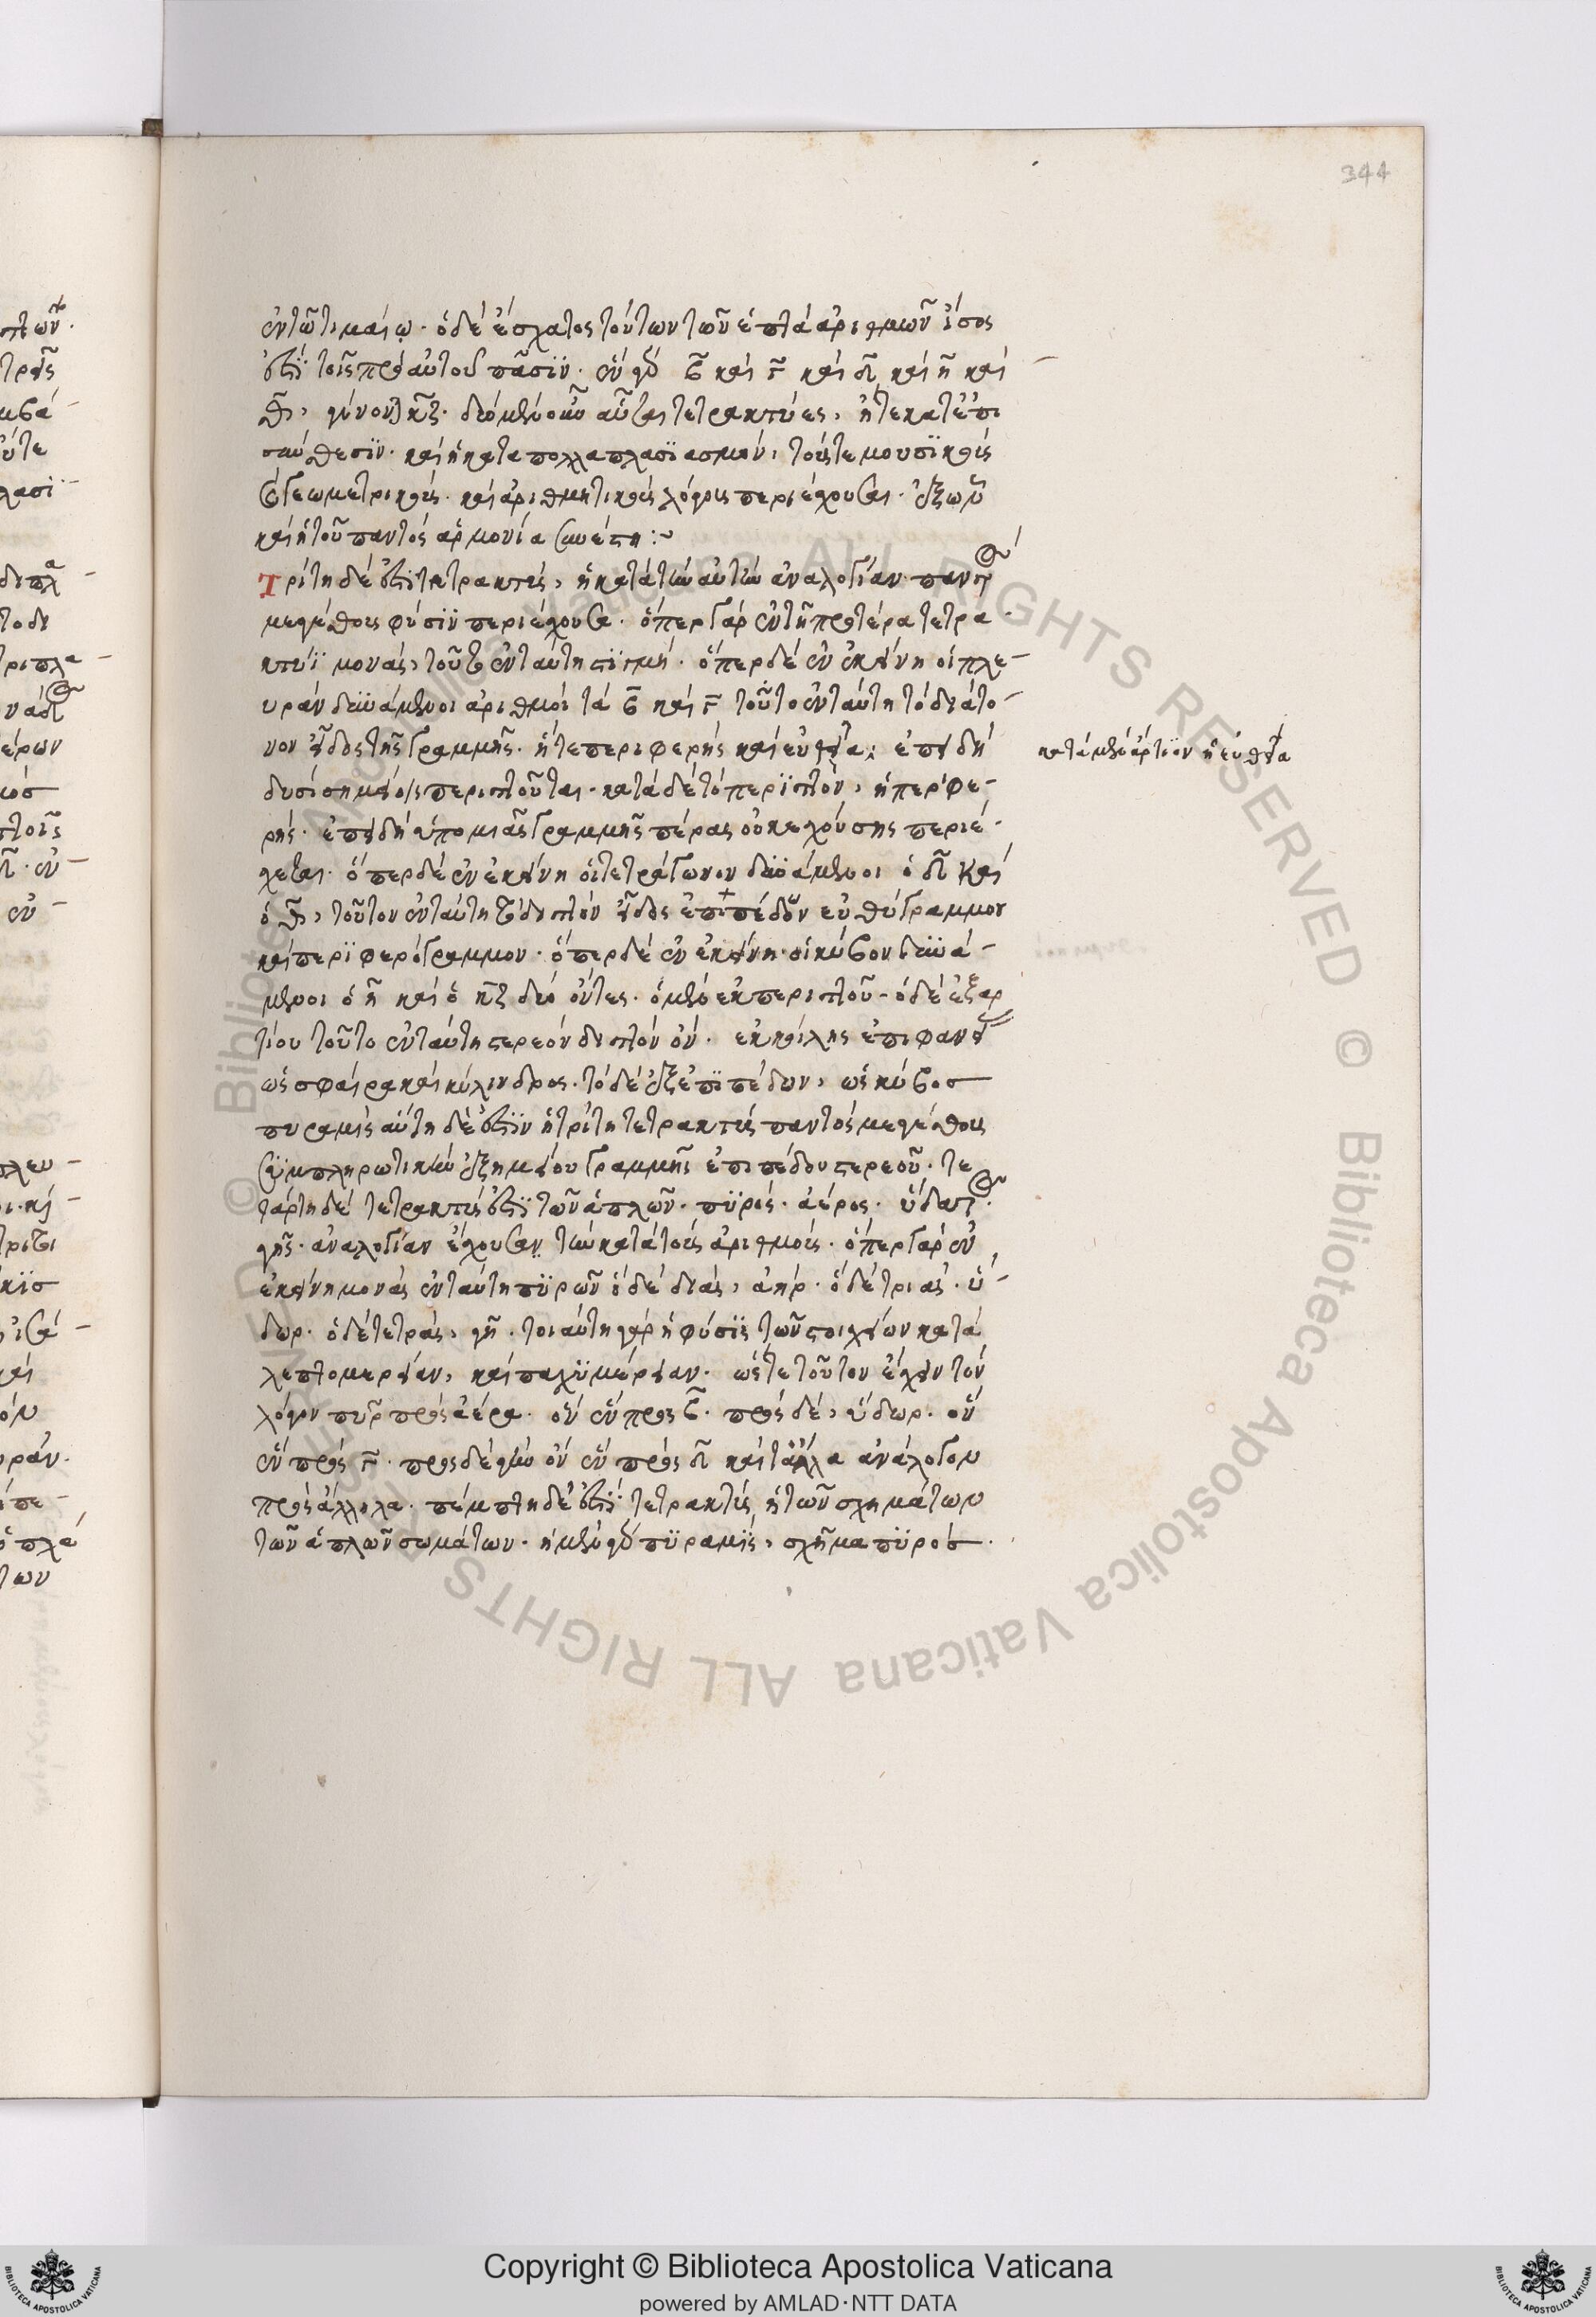 344
ἐν τῶ τιμαίω· ὁ δὲ ἔσχατος τούτων τῶν ἑπτὰ ἀριθμῶν ἴσος
ἐστὶ τοῖς πρὸ αὐτοῦ πᾶσιν· ἓν γὰρ β καὶ γ καὶ δ καὶ η καὶ
θ, γίνονται κζ· δύο μὲν οὖν αὗται τετρακτύες, ἥ τε κατ' ἐπι
σύνθεσιν· καὶ ἡ κατὰ πολλαπλασιασμόν, τούς τε μουσικοὺς
καὶ γεωμετρικοὺς· καὶ ἀριθμητικοὺς λόγους περιέχουσαι· ἐξ ὧν
καὶ ἡ τοῦ παντὸς ἁρμονία συνέστη :~
Τρίτη δέ ἐστι τετρακτὺς, ἡ κατὰ τὴν αὐτὴν ἀναλογίαν παντὸς
μεγέθους φύσιν περιέχουσα· ὅπερ γὰρ ἐν τῆ προτέρα τετρα
κτύϊ μονάς, τοῦτο ἐν ταύτη στιγμή· ὅπερ δὲ ἐν ἐκείνη οἱ πλε-
υρὰν δυνάμενοι ἀριθμοὶ τὰ β καὶ γ τοῦτο ἐν ταύτη τὸ διάτο-
νον εἶδος τῆς γραμμῆς· ἥ τε περιφερὴς καὶ εὐθεῖα· ἐπειδὴ
κατὰ μὲν ἄρτιον ἡ εὐθεῖα
δυσὶ σημείοις περιττοῦται· κατὰ δὲ τὸ περιττόν, ἡ περιφε-
ρής· ἐπειδὴ ὑπὸ μιᾶς γραμμῆς πέρας οὐκ ἐχούσης περιέ-
χεται· ὅπερ δὲ ἐν ἐκείνη οἱ τετράγωνον δυνάμενοι ὁ δ καὶ
ὁ θ, τοῦτον ἐν ταύτη τὸ διττὸν εἶδος ἐπιπέδων εὐθύγραμμον
καὶ περιφερόγραμμον· ὅπερ δὲ ἐν ἐκείνη οἱ κύβον δυνά-
μενοι ὁ η καὶ ὁ κζ δύο ὄντες· ὁ μὲν ἐκ περιττοῦ· ὁ δὲ ἐξ ἀρ
τίου τοῦτο ἐν ταύτη στερεὸν διττὸν ὄν· ἐκ κοίλης ἐπιφανεί
ὡς σφαῖρα καὶ κύλινδρος· τὸ δὲ ἐξ ἐπιπέδων, ὡς κύβος
πυραμὶς αὕτη δέ ἐστιν ἡ τρίτη τετρακτὺς παντὸς μεγέθους
συμπληρωτικὴ ἐκ σημείου γραμμῆς ἐπιπέδου στερεοῦ· τε
τάρτη δὲ τετρακτὺς ἐστὶ τῶν ἁπλῶν· πυρός· ἀέρος· ὕδατος·
γῆς· ἀναλογίαν ἔχουσαν τὴν κατὰ τοὺς ἀριθμούς· ὅπερ γὰρ ἐν
ἐκείνη μονὰς ἐν ταύτη πυρῶν ὁ δὲ δυάς, ἀήρ· ὁ δὲ τριάς· ὕ-
δωρ· ὁ δὲ τετράς, γῆ· τοιαύτη γὰρ ἡ φύσις τῶν στοιχείων κατὰ
λεπτομερείαν, καὶ παχυμέρειαν· ὥστε τοῦτον ἔχειν τὸν
λόγον πῦρ πρὸς ἀέρα· ὃν ἓν πρὸς β· πρὸς δὲ, ὕδωρ· ὃν
ἓν πρὸς γ· πρὸς δὲ γῆν ὃν ἓν πρὸς δ καὶ τἄλλα ἀνάλογον
πρὸς ἄλληλα· πέμπτη δέ ἐστι τετρακτὺς ἡ τῶν σχημάτων
τῶν ἁπλῶν σωμάτων· ἡ μὲν γὰρ πυραμὶς, σχῆμα πυρός·
Copyright © Biblioteca Apostolica Vaticana
powered by AMLAD·NTT DATA